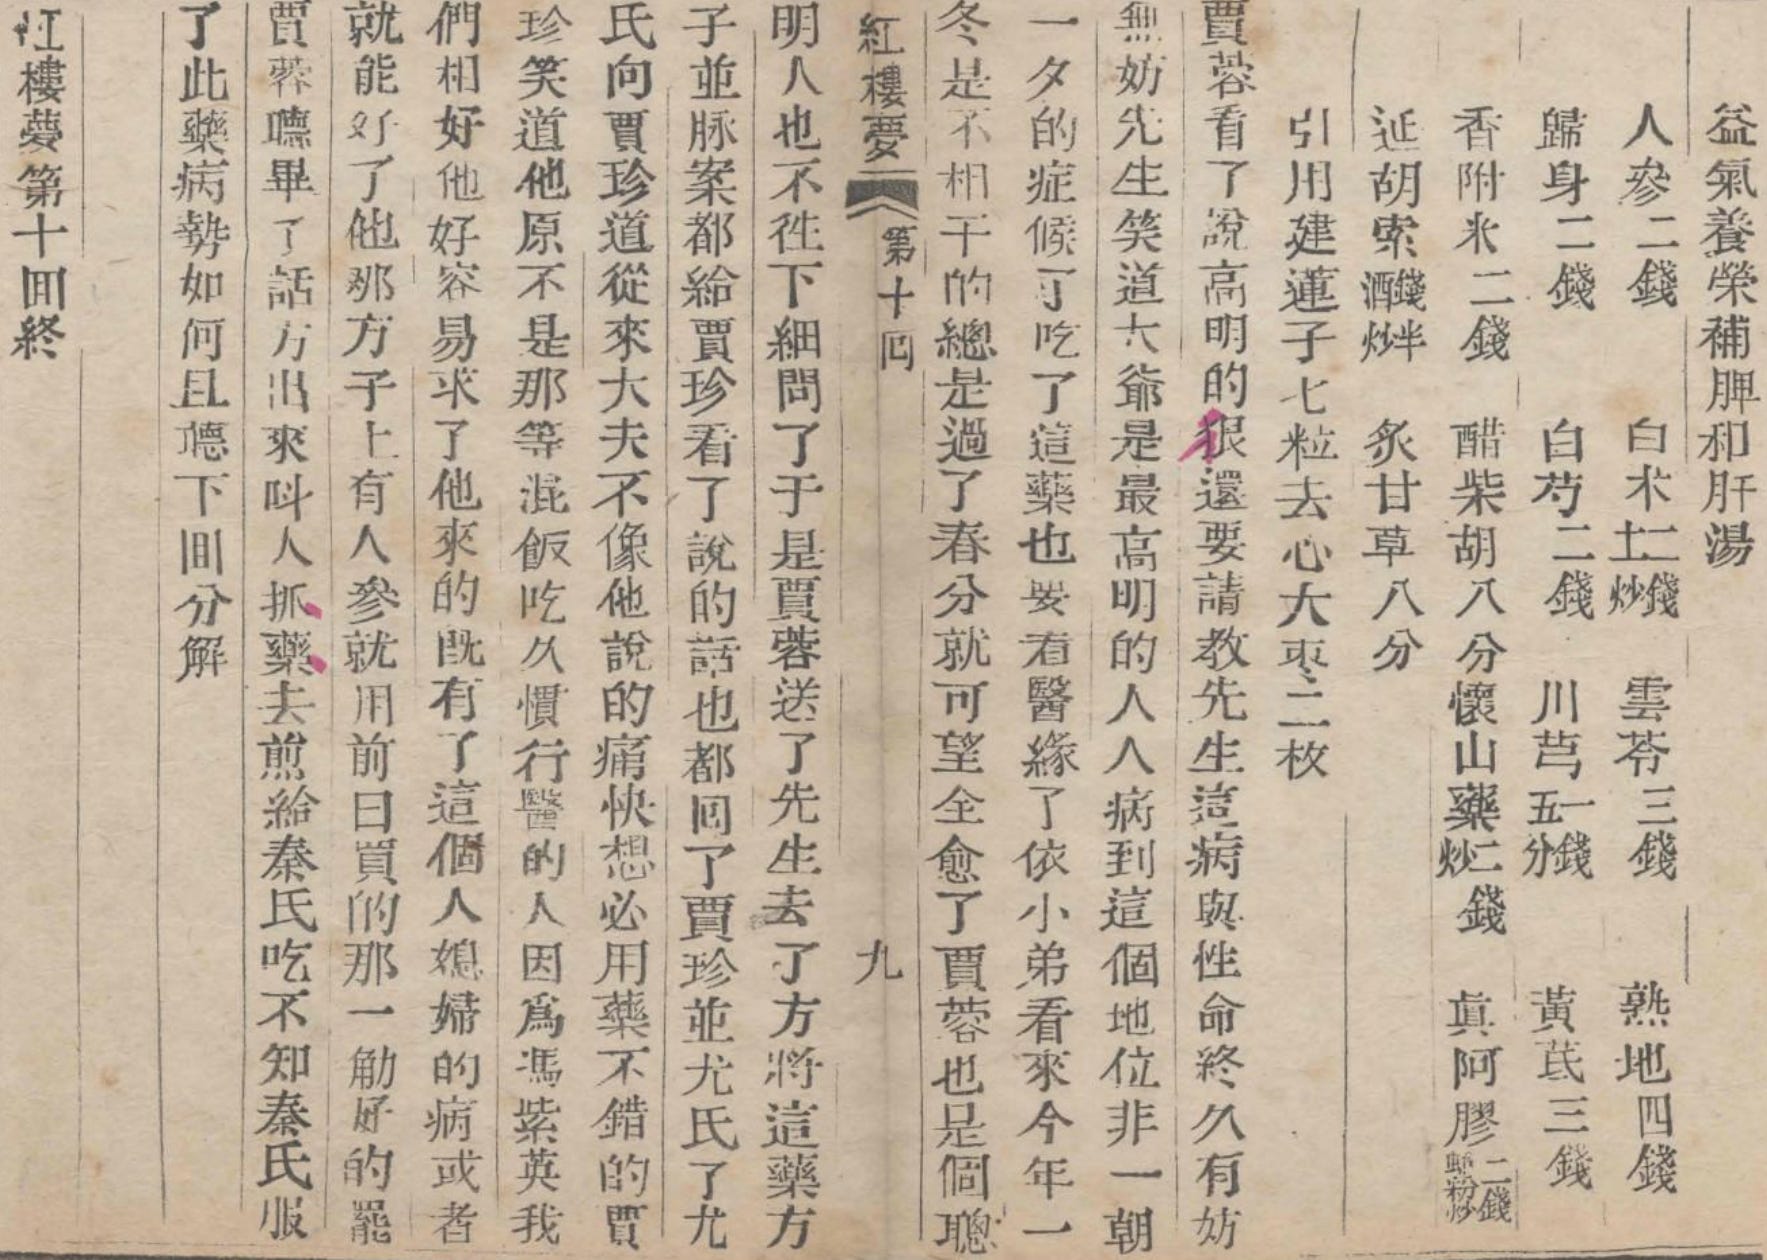 益氣養榮補脾和肝湯
人參二錢 白朮二錢土炒 雲苓三錢 熟地四錢
歸身二錢 白芍二錢 川芎一錢五分 黃芪三錢
香附米二錢 醋柴胡八分 懷山藥二錢炒 眞阿膠二錢蛤粉炒
延胡索錢半酒炒 炙甘草八分
引用建蓮子七粒去心大棗二枚
賈蓉看了說高明的狠還要請教先生這病與性命終久有妨
無妨先生笑道大爺是最高明的人人病到這個地位非一朝
一夕的症候了吃了這藥也要看醫緣了依小弟看來今年一
冬是不相干的總是過了春分就可望全愈了賈蓉也是個聰
紅樓夢 第十囘 九
明人也不徃下細問了于是賈蓉送了先生去了方將這藥方
子並脉案都給賈珍看了說的話也都囘了賈珍並尤氏了尤
氏向賈珍道從來大夫不像他說的痛快想必用藥不錯的賈
珍笑道他原不是那等混飯吃久慣行醫的人因爲馮紫英我
們相好他好容易求了他來的既有了這個人媳婦的病或者
就能好了他那方子上有人參就用前日買的那一觔好的罷
賈蓉聽畢了話方出來呌人抓藥去煎給秦氏吃不知秦氏服
了此藥病勢如何且聽下囘分解
紅樓夢第十囘終